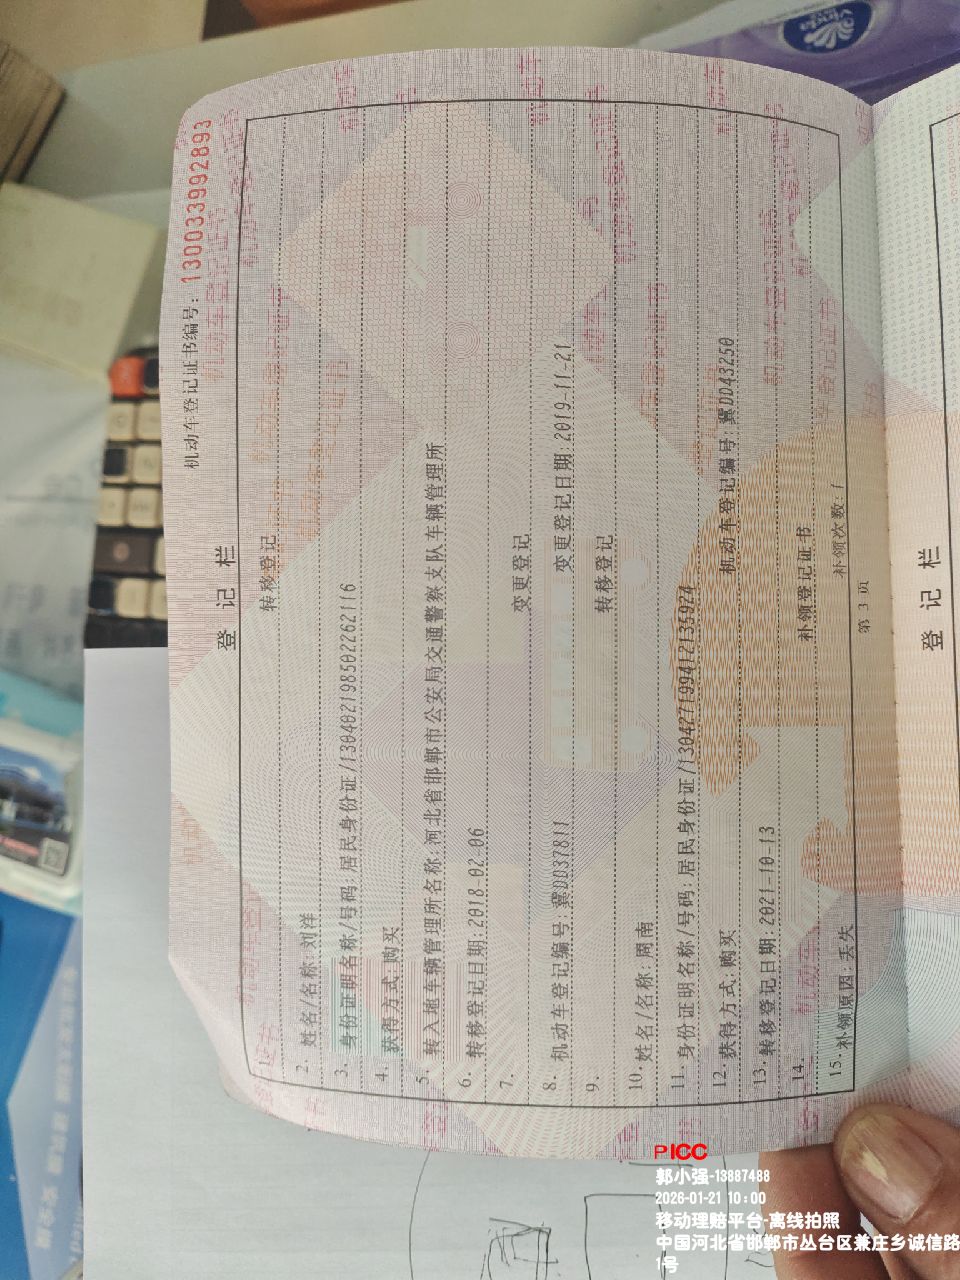 机动车登记证书编号：130033992893
登 记 栏
1. 转移登记
2. 姓名/名称:刘洋
3. 身份证明名称/号码:居民身份证/130402198502262116
4. 获得方式:购买
5. 转入地车辆管理所名称:河北省邯郸市公安局交通警察支队车辆管理所
6. 转移登记日期:2018-02-06
7. 变更登记
8. 机动车登记编号:冀DD37811 变更登记日期:2019-11-21
9. 转移登记
10. 姓名/名称:周南
11. 身份证明名称/号码:居民身份证/130427199412135924
12. 获得方式:购买 机动车登记编号:冀DD43250
13. 转移登记日期:2021-10-13
14. 补领登记证书
15. 补领原因:丢失 补领次数:1
第 3 页
登 记 栏
PICC
郭小强-13887488
2026-01-21 10:00
移动理赔平台-离线拍照
中国河北省邯郸市丛台区兼庄乡诚信路
1号